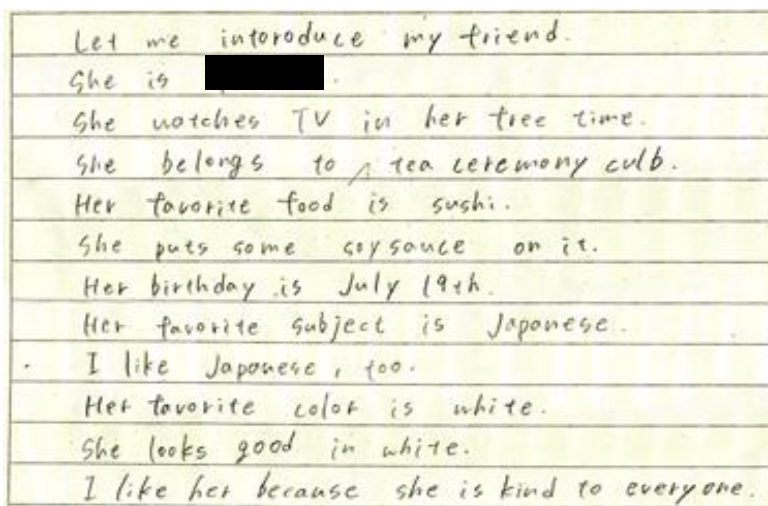 Let me intoroduce my friend.
She is .
She watches TV in her free time.
She belongs to tea ceremony culb.
Her favorite food is sushi.
She puts some soysauce on it.
Her birthday is July 19th.
Her favorite subject is Japanese.
I like Japanese, too.
Her favorite color is white.
She looks good in white.
I like her because she is kind to everyone.